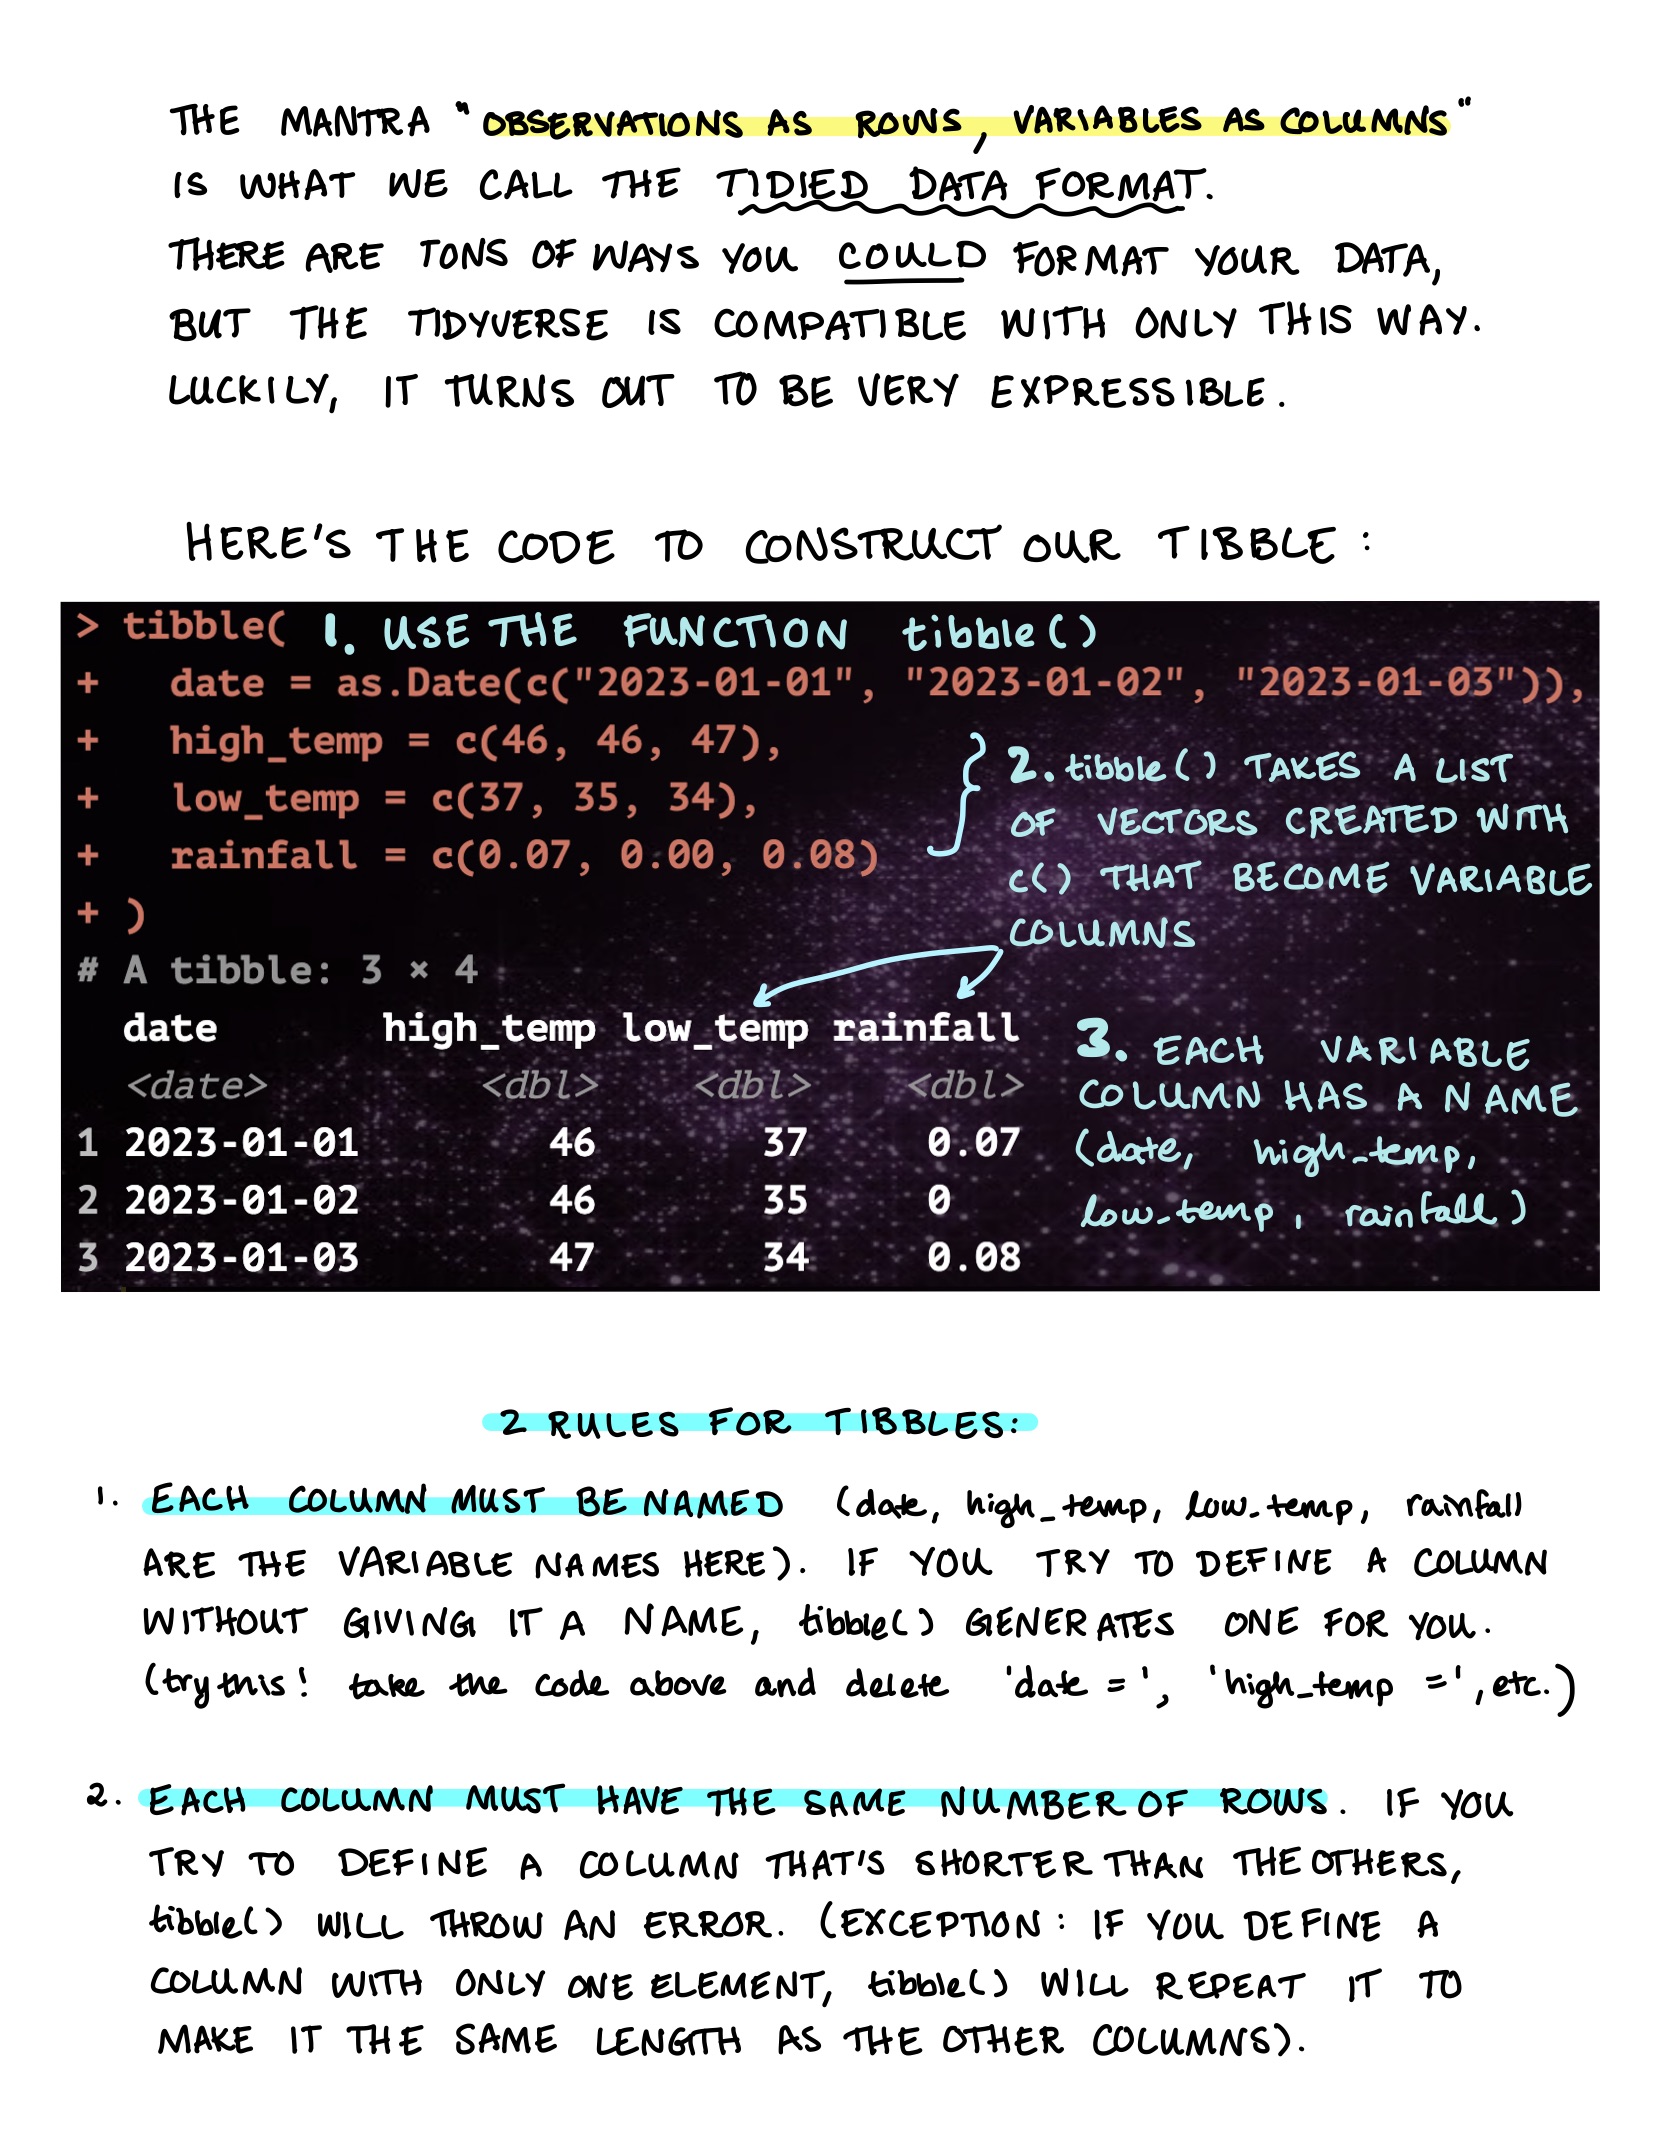 THE MANTRA "OBSERVATIONS AS ROWS, VARIABLES AS COLUMNS"
IS WHAT WE CALL THE TIDIED DATA FORMAT.
THERE ARE TONS OF WAYS YOU COULD FORMAT YOUR DATA,
BUT THE TIDYVERSE IS COMPATIBLE WITH ONLY THIS WAY.
LUCKILY, IT TURNS OUT TO BE VERY EXPRESSIBLE.
HERE'S THE CODE TO CONSTRUCT OUR TIBBLE:
> tibble(
1. USE THE FUNCTION tibble()
+   date = as.Date(c("2023-01-01", "2023-01-02", "2023-01-03")),
+   high_temp = c(46, 46, 47),
+   low_temp = c(37, 35, 34),
+   rainfall = c(0.07, 0.00, 0.08)
+ )
2. tibble() TAKES A LIST
OF VECTORS CREATED WITH
c() THAT BECOME VARIABLE
COLUMNS
# A tibble: 3 × 4
date high_temp low_temp rainfall
<date> <dbl> <dbl> <dbl>
1 2023-01-01 46 37 0.07
2 2023-01-02 46 35 0
3 2023-01-03 47 34 0.08
3. EACH VARIABLE
COLUMN HAS A NAME
(date, high_temp,
low_temp, rainfall)
2 RULES FOR TIBBLES:
1. EACH COLUMN MUST BE NAMED (date, high_temp, low_temp, rainfall
ARE THE VARIABLE NAMES HERE). IF YOU TRY TO DEFINE A COLUMN
WITHOUT GIVING IT A NAME, tibble() GENERATES ONE FOR YOU.
(try this! take the code above and delete 'date =', 'high_temp =', etc.)
2. EACH COLUMN MUST HAVE THE SAME NUMBER OF ROWS. IF YOU
TRY TO DEFINE A COLUMN THAT'S SHORTER THAN THE OTHERS,
tibble() WILL THROW AN ERROR. (EXCEPTION: IF YOU DEFINE A
COLUMN WITH ONLY ONE ELEMENT, tibble() WILL REPEAT IT TO
MAKE IT THE SAME LENGTH AS THE OTHER COLUMNS).